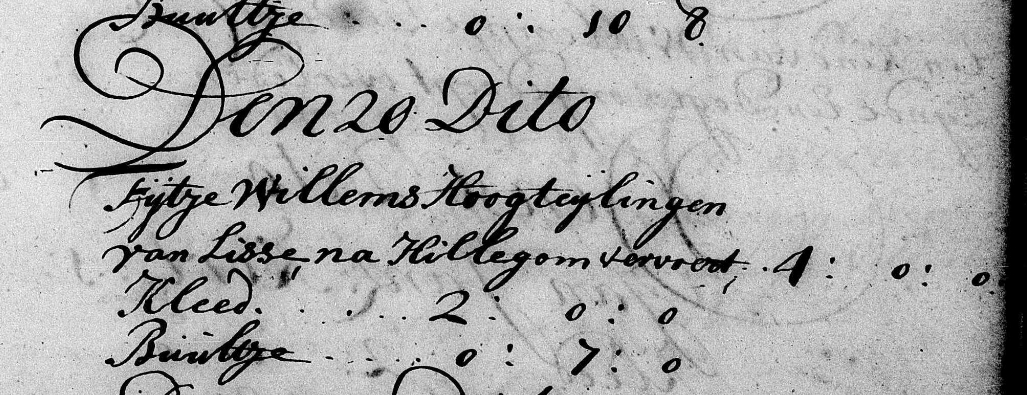 Buultje . . . . 0 : 10 8
Den 20 Dito
Eijtje Willems Hoogteijlingen
van Lisse na Hillegom vervoert, . 4 : 0 : 0
Kleed. . . . . 2 : 0 : 0
Buultje . . . . 0 : 7 : 0